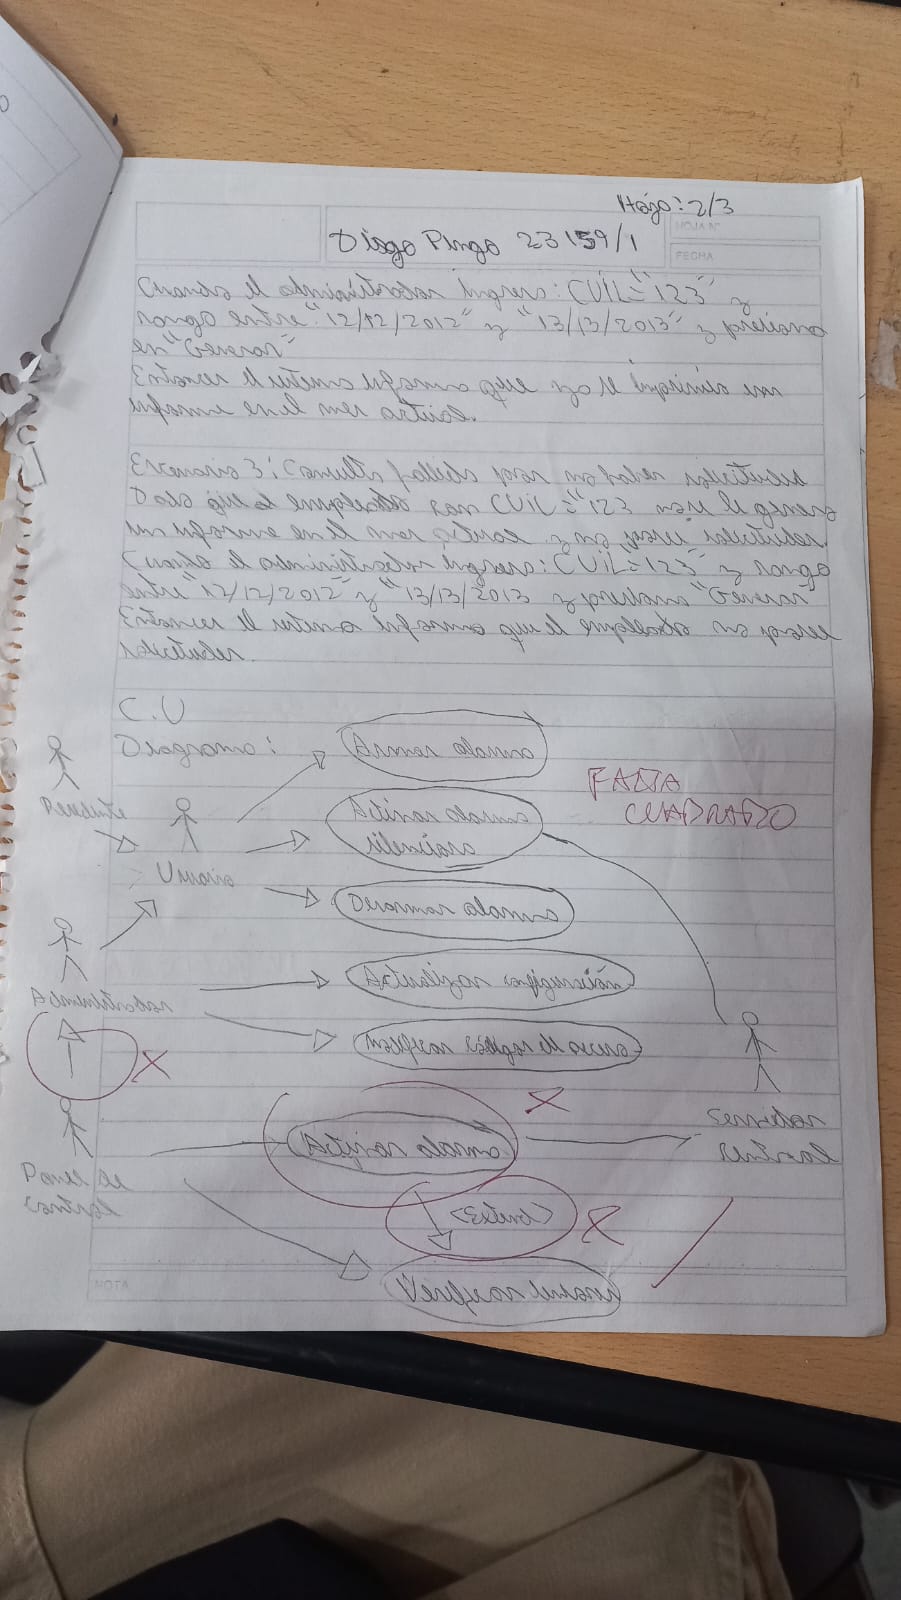 Hojo: 2/3
HOJA N°
Diego Pingo 23159/1
FECHA
Cuando el administrador ingresa: CUIL="123" y
rango entre "12/12/2012" y "13/13/2013" y presiona
en "Generar"
Entonces el sistema informa que ya se imprimió un
informe en el mes actual.
Escenario 3: Consulta fallida por no haber solicitudes
Dado que el empleado con CUIL="123 no se le generó
un informe en el mes actual y no posee solicitudes.
Cuando el administrador ingresa: CUIL="123" y rango
entre "12/12/2012" y "13/13/2013 y presiona "Generar"
Entonces el sistema informa que el empleado no posee
solicitudes.
C.U
Diagrama:
Armar alarma
FALTA
CUADRADO
Residente
Activar alarma
silenciosa
Usuario
Desarmar alarma
Actualizar configuración
Administrador
código de acceso
Servidor
central
alarma
Panel de
control
Verificar
NOTA